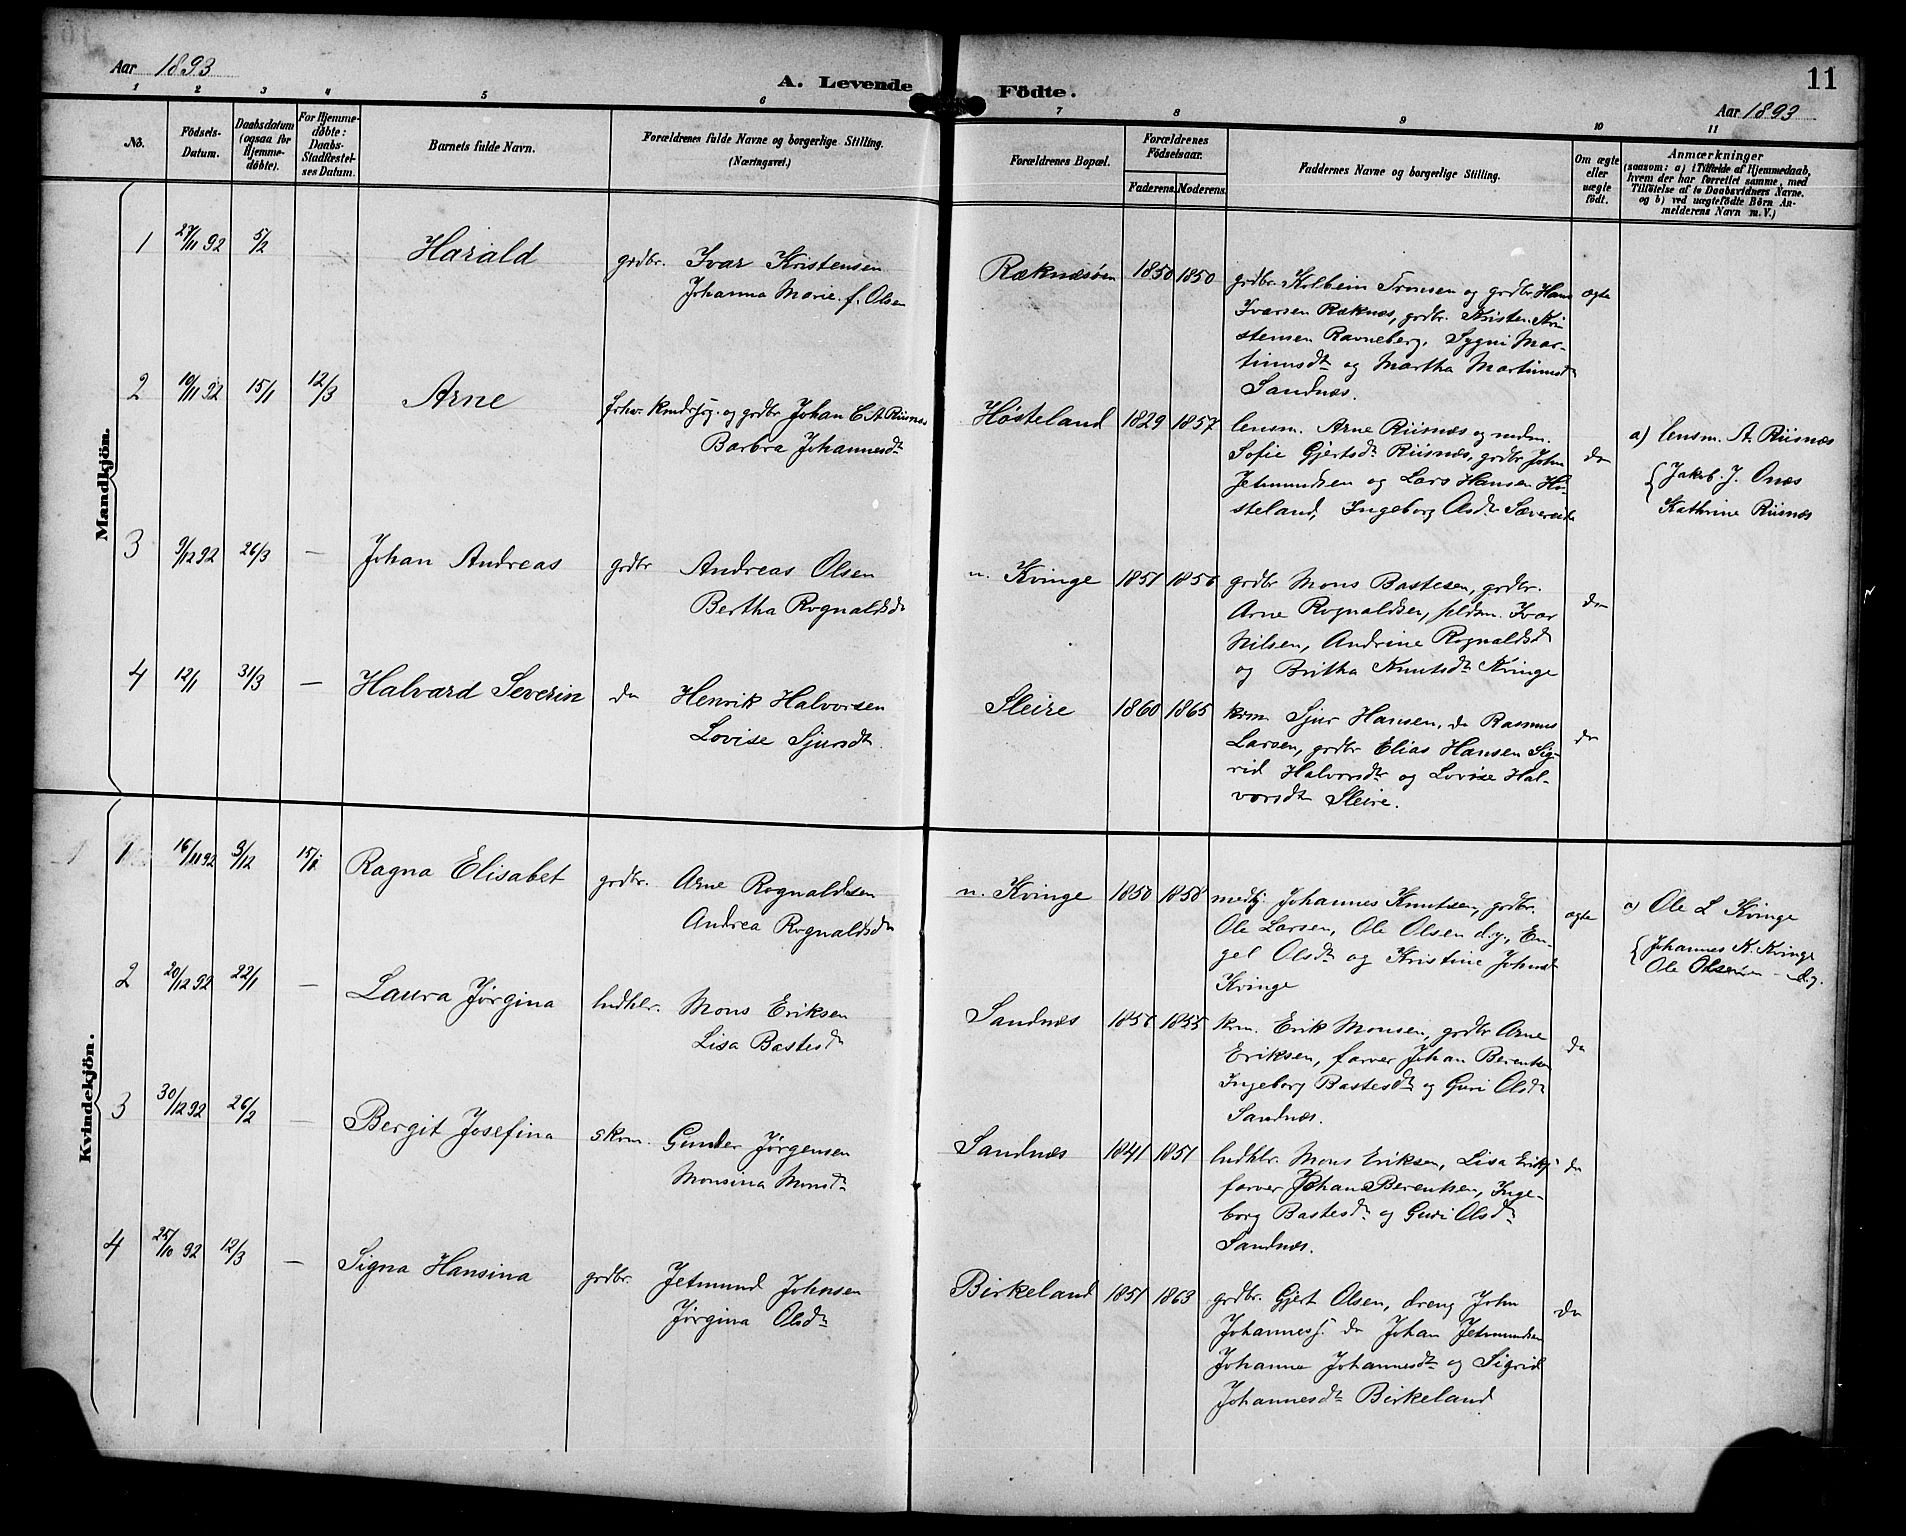 Aar 1893
A. Levende Födte.
11
Aar 1893
1 2 3 4 5 6 7 8 9 10 11
No.
Födsels-
Datum.
Daabsdatum
(ogsaa for
Hjemme-
døbte).
For Hjemme-
døbte:
Daabs-
Stadfæstel-
ses Datum.
Barnets fulde Navn.
Forældrenes fulde Navne og borgerlige Stilling.
(Næringsvei.)
Forældrenes Bopæl.
Forældrenes
Födselsaar.
Faderens. Moderens.
Faddernes Navne og borgerlige Stilling.
Om ægte
eller
uægte
födt.
Anmærkninger
(saasom: a) i Tilfælde af Hjemmedaab,
hvem der har forrettet samme, med
Tilføielse af to Daabsvidners Navne.
og b) ved uægtefödte Börn An-
melderens Navn m. V.)
Mandkjön.
1 27/11 92 5/2 Harald
grdbr. Ivar Kristensen
Johanna Marie f. Olsen
Ræknæsøen 1850 1850
grdbr. Kolbein Tronsen og grdbr Hans
Ivarsen Ræknæs, grdbr. Kristen Kri
stensen Ravneberg, Sygni Mar-
tinusdt og Martha Martinusdt
Sandnæs.
ægte
2 10/11 92 15/1 12/3 Arne
og grdbr Johan C. A. Riisnæs
Barbra Johannesdt
Høsteland 1829 1857
lensm. Arne Riisnæs og
Sofie Gjertsdt Riisnæs, grdbr John
Jetmundsen og Lars Hansen Hø-
steland, Ingeborg Olsdt Sævereide
do
a) lensm. A. Riisnæs
Jakob. J. Onæs
Kathrine Riisnæs
3 9/12 92 26/3 — Johan Andreas
grdbr Andreas Olsen
Bertha Rognaldsdt
n. Kvinge 1851 1856
grdbr Mons Bastesen, grdbr.
Arne Rognaldsen, seldsm. Ivar
Nilsen, Andrine Rognaldsdt
og Britha Knutsdt Kvinge
do
4 12/1 31/3 — Halvard Severin
do Henrik Halvorsen
Lovise Sjursdt.
Sleire 1860 1865
krm Sjur Hansen, do Rasmus
Larsen, grdbr Elias Hansen Sig-
rid Halvorsdt og Lovise Hal-
vorsdt Sleire.
do
Kvindekjön.
1 16/11 92 9/12 15/1 Ragna Elisabet
grdbr. Arne Rognaldsen
Andrea Rognaldsdt
n. Kvinge 1850 1858
medhj. Johannes Knutsen, grdbr.
Ole Larsen, Ole Olsen d.y., En-
gel Olsdt og Kristine Johnsdt
Kvinge
ægte
a) Ole L Kvinge
Johannes K. Kvinge
Ole Olsen — d.y.
2 20/12 92 22/1 — Laura Jørgina
lndhlr. Mons Eriksen
Lisa Bastesdt
Sandnæs 1856 1855
krm. Erik Monsen, grdbr Arne
Eriksen, farver Johan Berentsen
Ingeborg Bastesdt og Guri Olsdt
Sandnæs.
do
3 30/12 92 26/2 — Bergit Josefina
skrm. Gunder Jørgensen
Monsina Monsdt
Sandnæs 1841 1851
lndhlr. Mons Eriksen, Lisa Eriks
farver Johan Berentsen, Inge-
borg Bastesdt og Guri Olsdt
Sandnæs.
do
4 25/10 92 12/3 — Signa Hansina
grdbr. Jetmund Johnsen
Jørgina Olsdt
Birkeland 1851 1863
grdbr. Gjert Olsen, dreng John
Johanness. do Johan Jetmundsen
Johanne Johannesdt og Sigrid
Johannesdt Birkeland
do